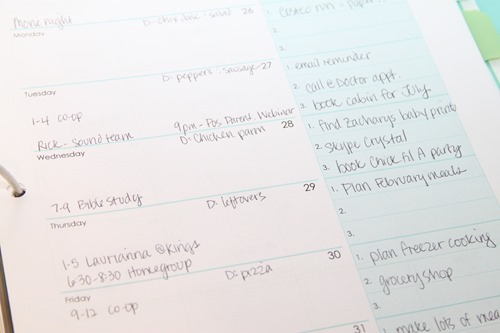 Movie night
D- chix, rice, salad 26
Monday
D- peppers, sausage 27
Tuesday
1-4 co-op
9pm - Pos Parent Webinar
Rick - Sound team
D- Chicken parm 28
Wednesday
7-9 Bible Study
D- leftovers 29
Thursday
1-5 Laurianna @ Kings
6:30-8:30 Homegroup
D- pizza 30
Friday
9-12 co-op
31
Costco run - paper
2.
3.
1. email reminder
2. call @ Doctor appt.
3. book cabin for July
1. find Zachary's baby photo
2. Skype Crystal
3. book Chick Fil A party
1. Plan February meals
2.
3.
1. plan freezer cooking
2. grocery shop
3.
1. make lots of